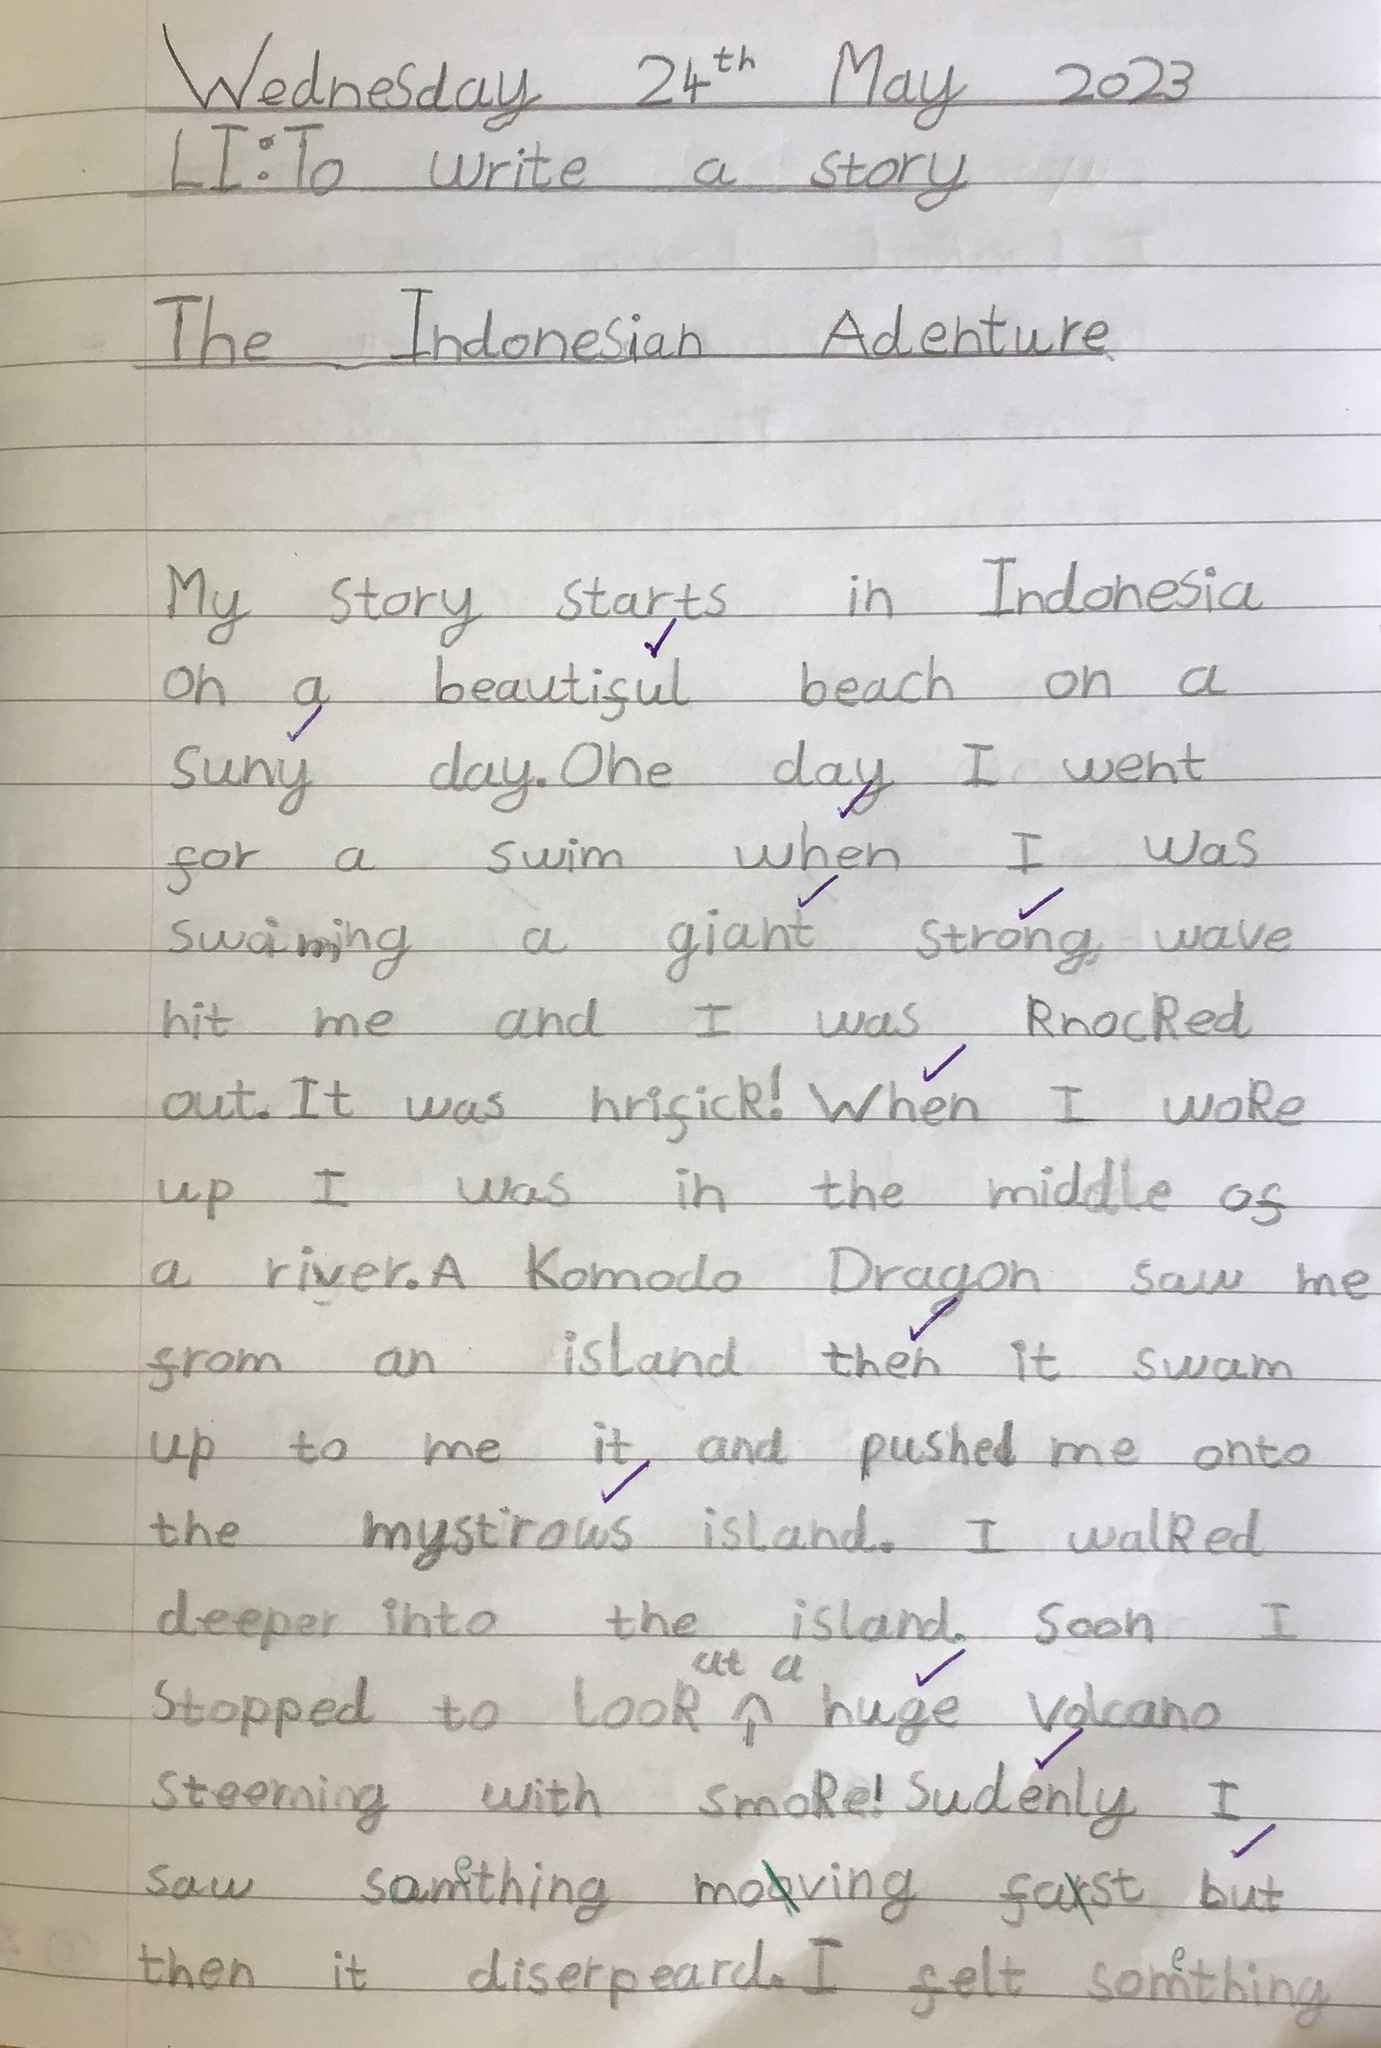 Wednesday 24th May 2023
LI: To write a story
The Indonesian Adenture
My story starts in Indonesia
on a beautiful beach on a
suny day. One day I went
for a swim when I was
swaiming a giant strong, wave
hit me and I was knocked
out. It was hrifick! When I woke
up I was in the middle of
a river. A Komodo Dragon saw me
from an island then it swam
up to me it, and pushed me onto
the mystrous island. I walked
deeper into the island. Soon I
at a
stopped to look huge volcano
steeming with smoke! Sudenly I
saw something moving fast but
then it diserpeard. I felt something